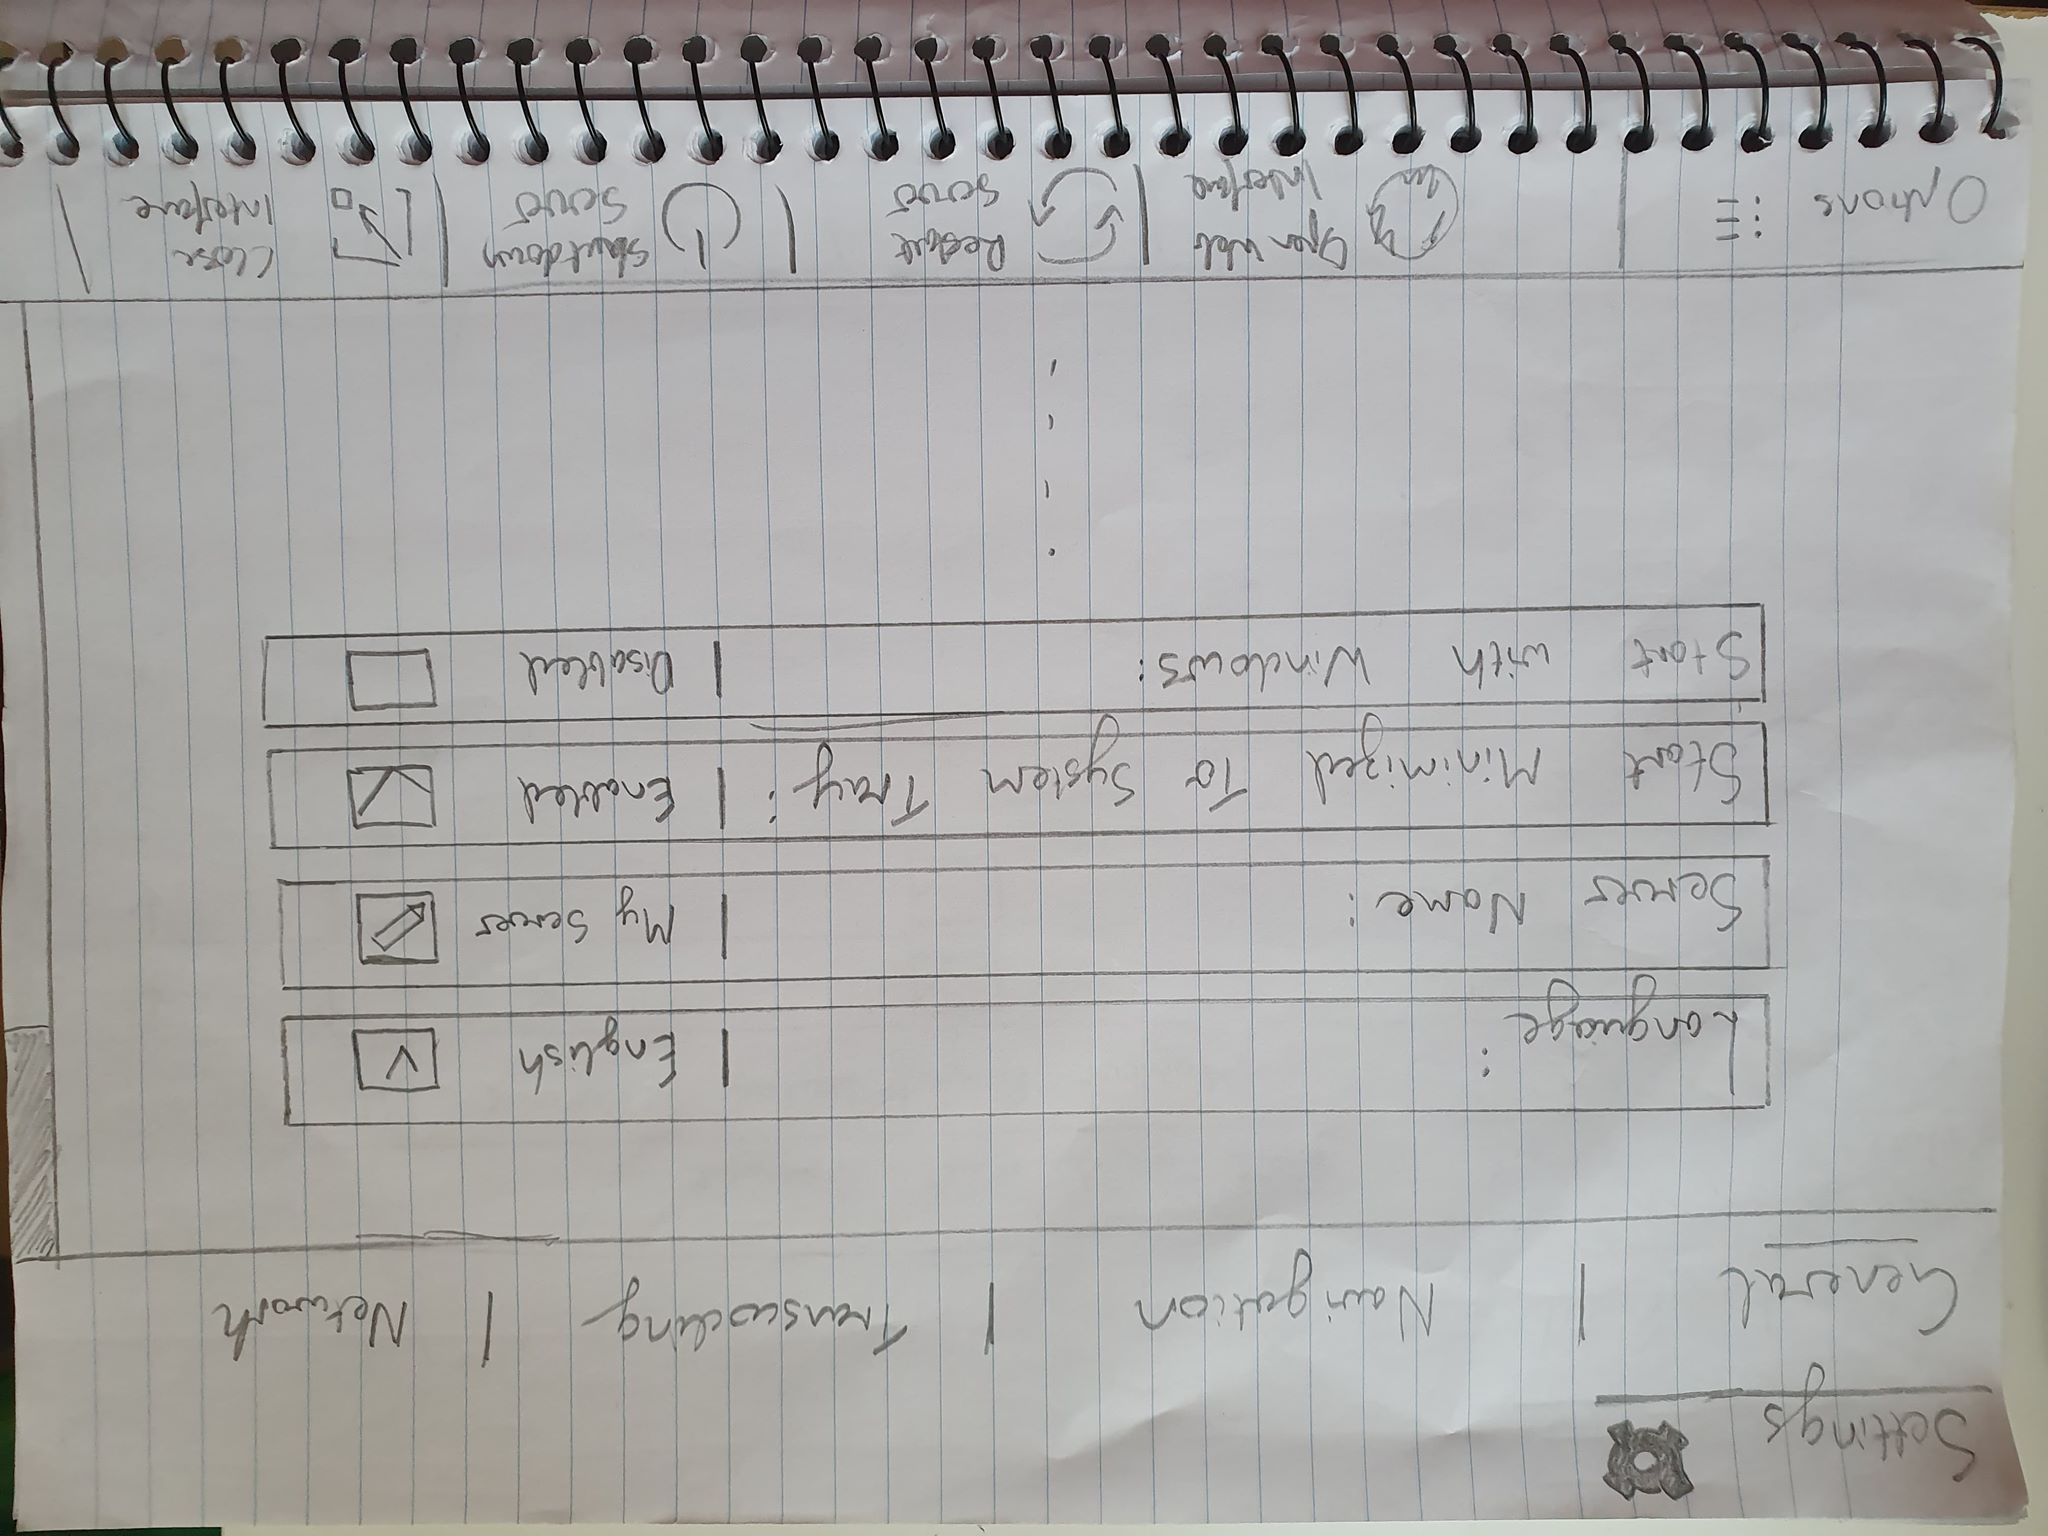 Settings
General | Navigation | Transcoding | Network
Language: | English
Server Name: | My Server
Start Minimized To System Tray: | Enabled
Start with Windows: | Disabled
Options
Open Web
Interface
Restart
Server
Shutdown
Server
Close
Interface